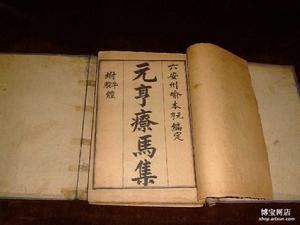 六安州喻本編定
元亨療馬集
牛經
博宝网店
shop.artxun.com